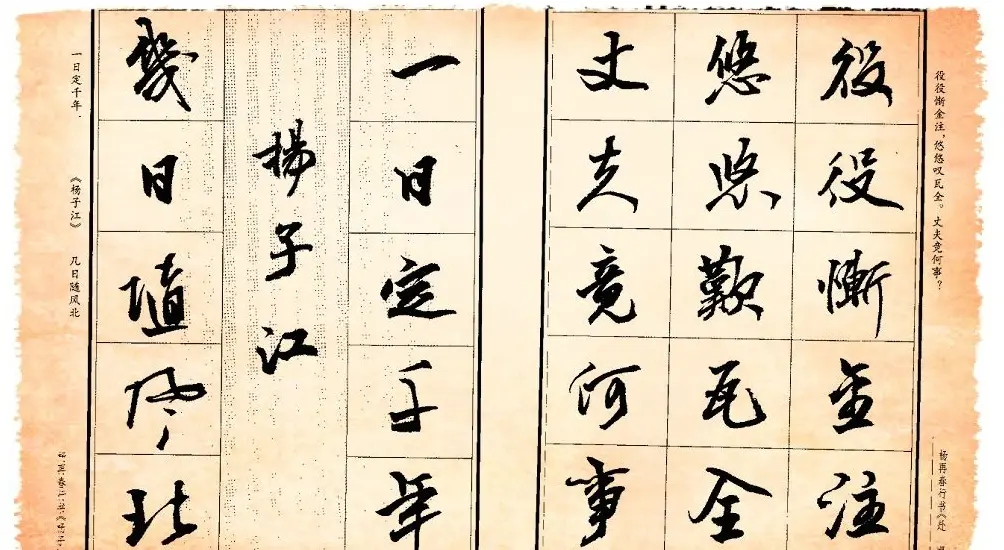 役役惭金注，悠悠叹瓦全。丈夫竟何事？
杨再春行书《
役役慚金注
悠悠歎瓦全
丈夫竟何事
一日定千年
揚子江
幾日隨風北
一日定千年．　《杨子江》　几日随风北